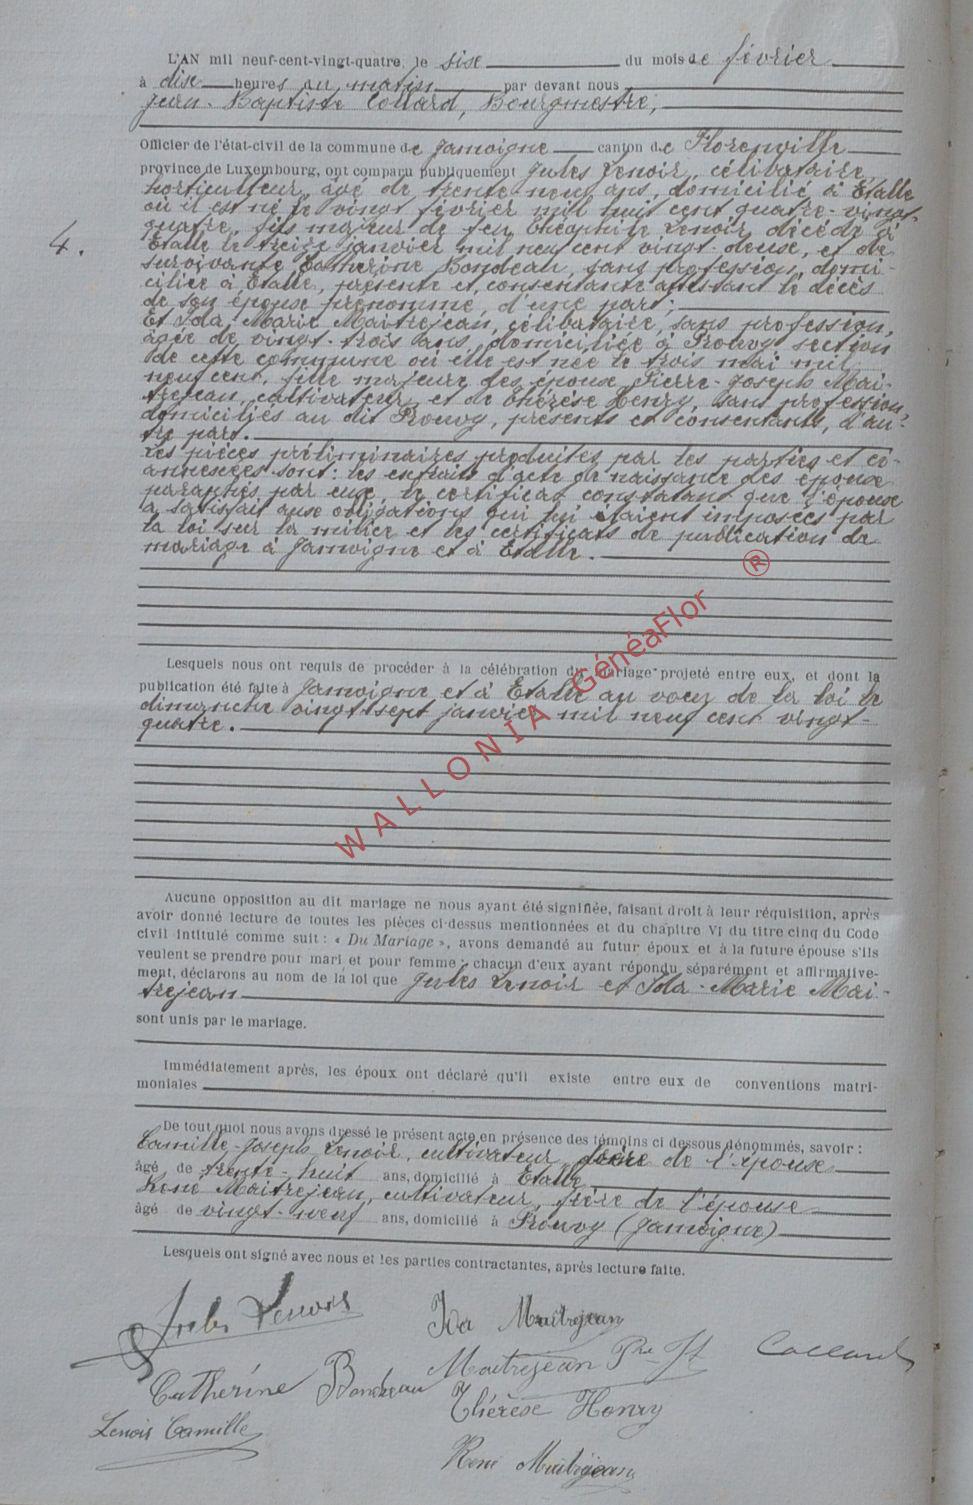 L'AN mil neuf-cent-vingt-quatre, le six du mois de février
à dix heures au matin par devant nous
Jean-Baptiste Collard, Bourgmestre,
Officier de l'état-civil de la commune de Jamoigne canton de Florenville
province de Luxembourg, ont comparu publiquement Jules Lenoir, célibataire,
horticulteur, âgé de trente neuf ans, domicilié à Etalle
où il est né le vingt février mil huit cent quatre-vingt-
quatre, fils majeur de feu Théophile Lenoir, décédé à
4. Etalle le treize janvier mil neuf cent vingt-deux, et de
survivante Catherine Bondeau, sans profession, domi-
ciliée à Etalle, présente et consentante attestant le décès
de son époux prénommé, d'une part;
Et Ida-Marie Maitrejean, célibataire, sans profession,
âgée de vingt-trois ans, domiciliée à Prouvy section
de cette commune où elle est née le trois mai mil
neuf cent, fille majeure des époux Pierre-Joseph Mai-
trejean, cultivateur, et de Thérèse Henry, sans profession,
domiciliés au dit Prouvy, présents et consentants, d'au-
tre part.
Les pièces préliminaires produites par les parties et ci-
annexées sont: les extraits d'acte de naissance des époux
paraphés par eux, le certificat constatant que l'époux
a satisfait aux obligations qui lui étaient imposées par
la loi sur la milice et les certificats de publication de
mariage à Jamoigne et à Etalle.
WALLONIA GénéaFlor ®
Lesquels nous ont requis de procéder à la célébration du mariage projeté entre eux, et dont la
publication été faite à Jamoigne et à Etalle au vœu de la loi le
dimanche vingt-sept janvier mil neuf cent vingt-
quatre.
Aucune opposition au dit mariage ne nous ayant été signifiée, faisant droit à leur réquisition, après
avoir donné lecture de toutes les pièces ci-dessus mentionnées et du chapitre VI du titre cinq du Code
civil intitulé comme suit : « Du Mariage », avons demandé au futur époux et à la future épouse s'ils
veulent se prendre pour mari et pour femme ; chacun d'eux ayant répondu séparément et affirmative-
ment, déclarons au nom de la loi que Jules Lenoir et Ida-Marie Mai-
trejean
sont unis par le mariage.
Immédiatement après, les époux ont déclaré qu'il existe entre eux de conventions matri-
moniales
De tout quoi nous avons dressé le présent acte en présence des témoins ci dessous dénommés, savoir :
Camille-Joseph Lenoir, cultivateur, frère de l'époux
âgé de trente-huit ans, domicilié à Etalle
René Maitrejean, cultivateur, frère de l'épouse
âgé de vingt-neuf ans, domicilié à Prouvy (Jamoigne)
Lesquels ont signé avec nous et les parties contractantes, après lecture faite.
Jules Lenoir Ida Maitrejean
Maitrejean Pre Jh Collard
Catherine Bondeau Thérèse Henry
Lenoir Camille
René Maitrejean